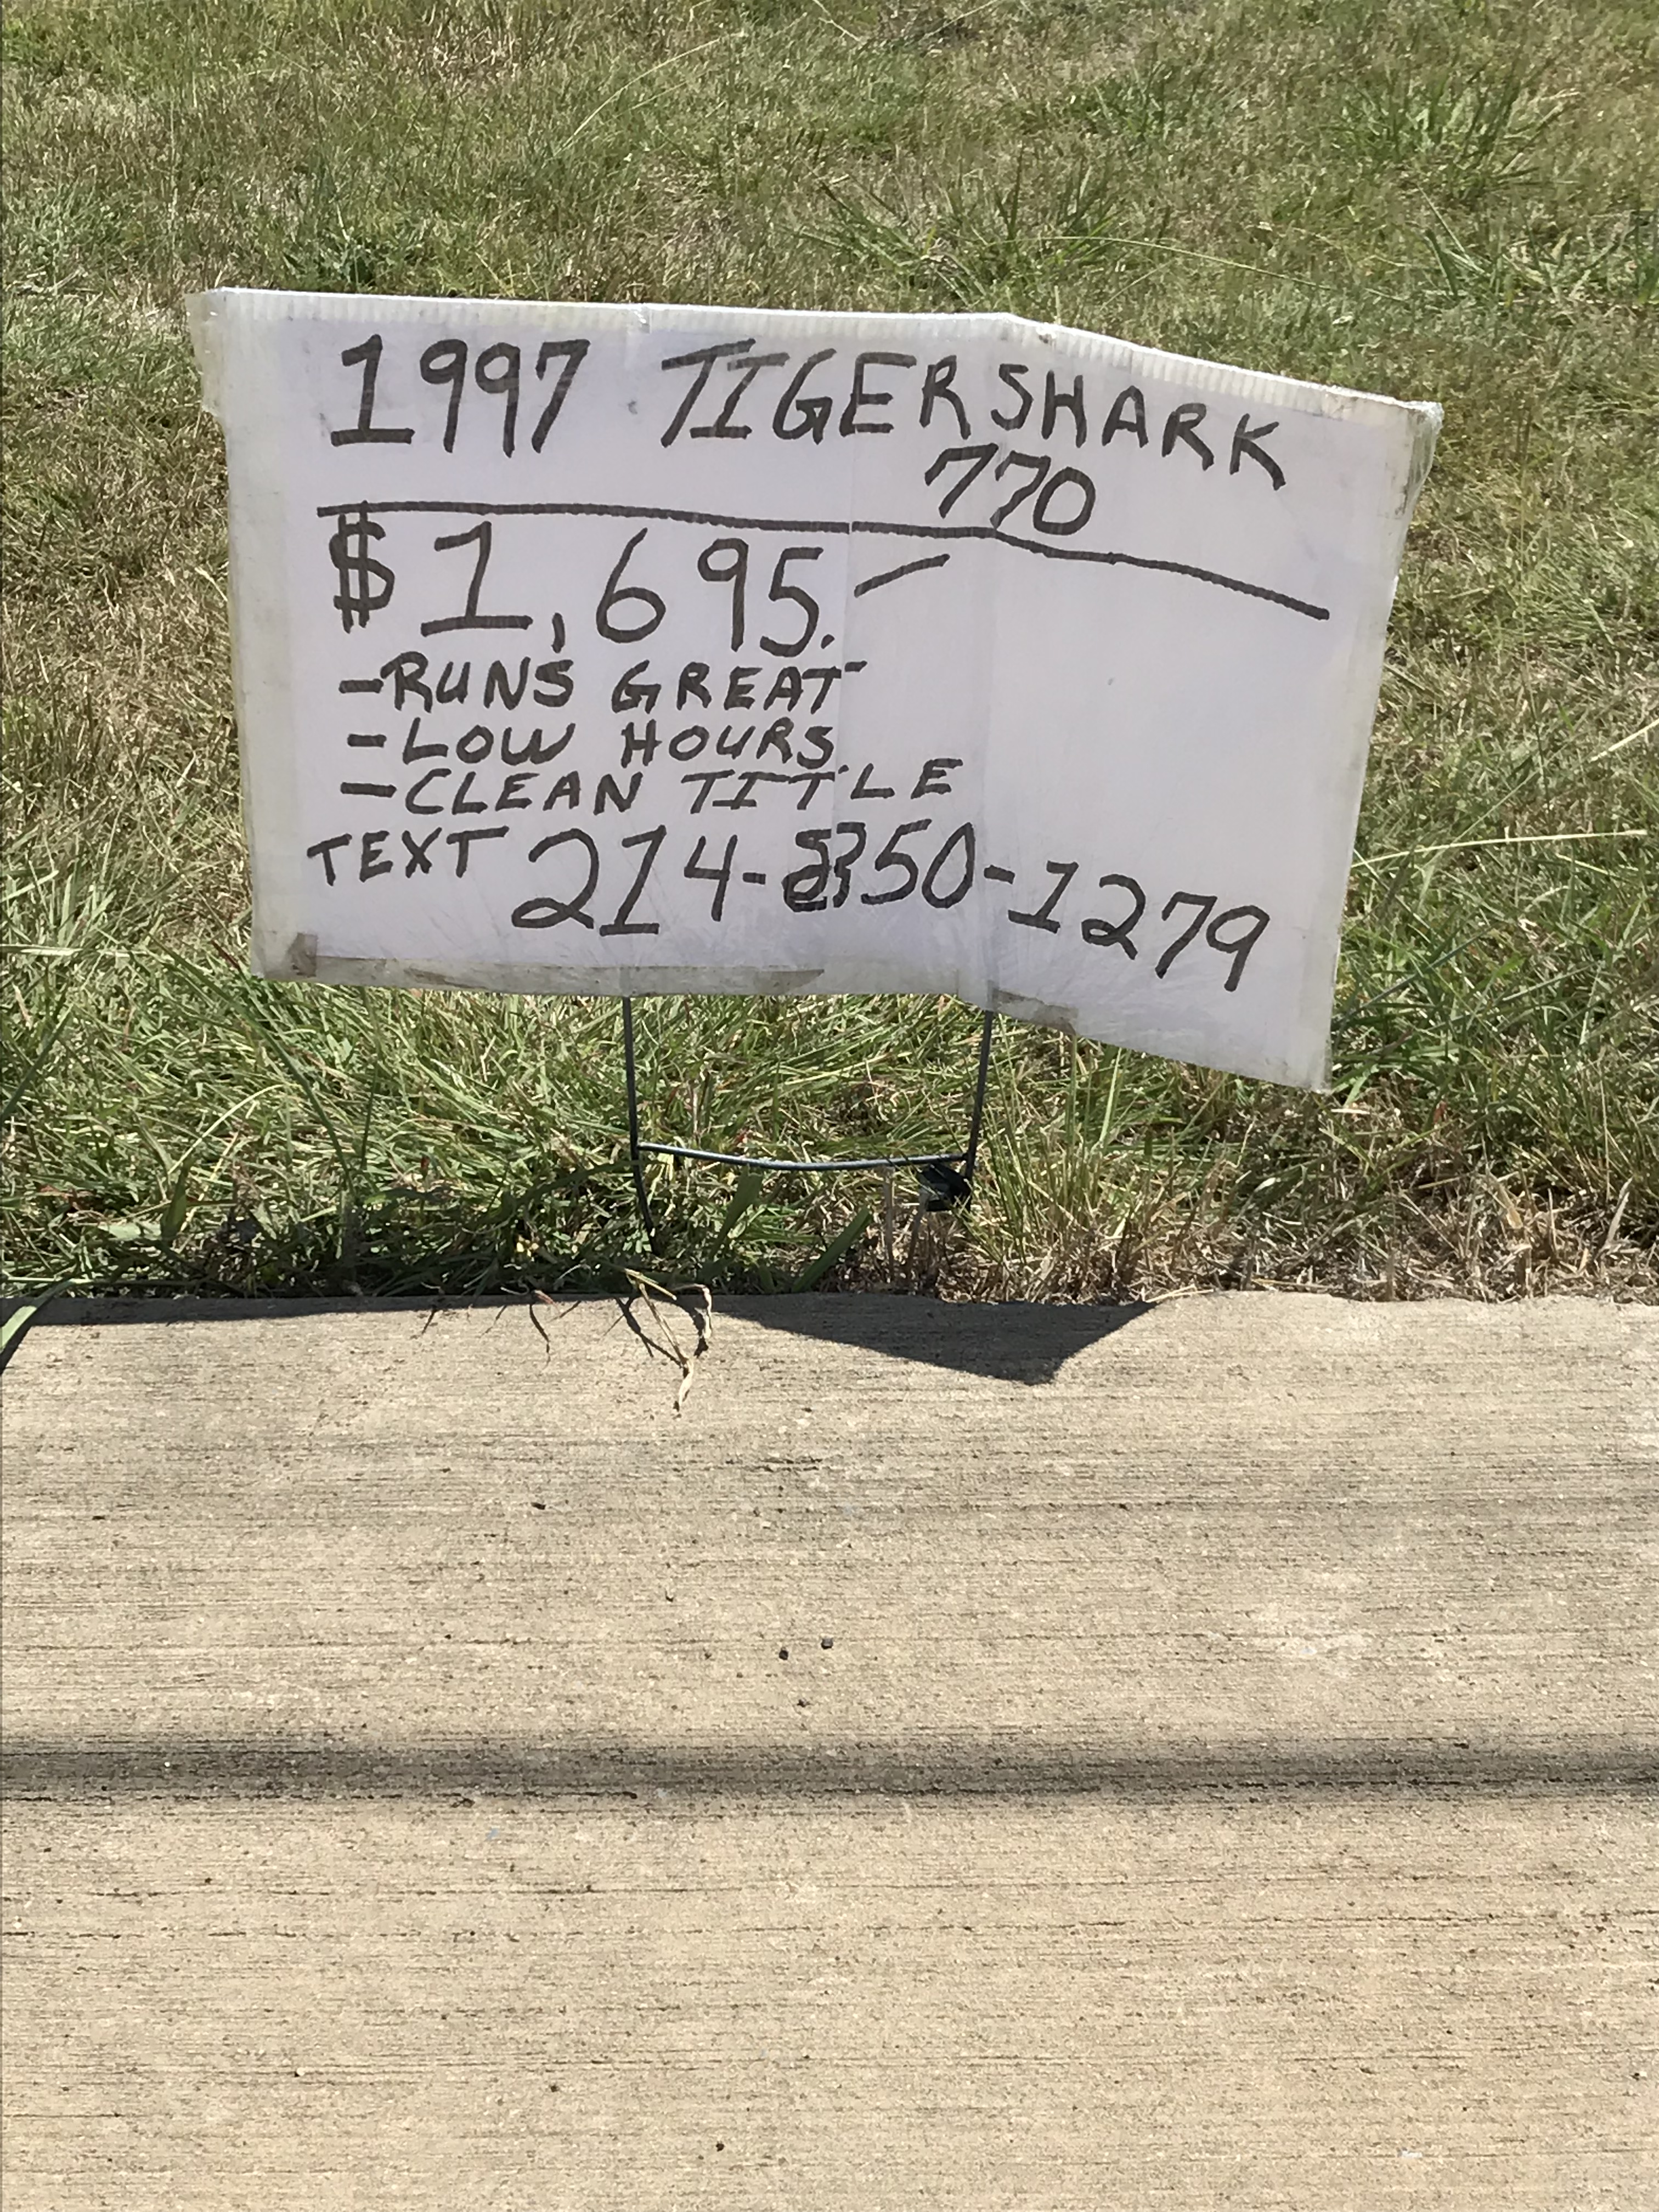 1997 TIGERSHARK
770
$1,695.—
-RUNS GREAT
-LOW HOURS
-CLEAN TITLE
TEXT 214-350-1279